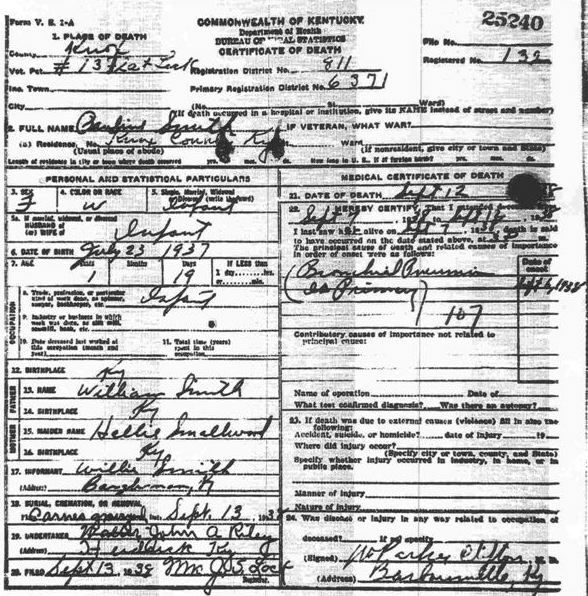 Form V. S. 1-A
COMMONWEALTH OF KENTUCKY
Department of Health
BUREAU OF STATISTICS
CERTIFICATE OF DEATH
25240
File No.
Registered No. 139
1. PLACE OF DEATH
County Knox
Vot. Pct. # 13 Flat Lick
Registration District No. 811
Inc. Town
Primary Registration District No. 6371
City
(No. St. Ward)
(If death occurred in a hospital or institution, give its NAME instead of street and number)
2. FULL NAME Smith
IF VETERAN, WHAT WAR?
(a) Residence, No. Knox County Ky Ward
(Usual place of abode)
(If nonresident, give city or town and State)
Length of residence in city or town where death occurred yrs. mos. ds. How long in U. S., if of foreign birth? yrs. mos. ds.
PERSONAL AND STATISTICAL PARTICULARS
3. SEX F
4. COLOR OR RACE W
5. Single, Married, Widowed Divorced (write the word) Infant
5a. If married, widowed, or divorced
HUSBAND of
(or) WIFE of Infant
6. DATE OF BIRTH July 23 1937
7. AGE Years Months Days If LESS than
1 19 1 day, hrs.
or min.
OCCUPATION
8. Trade, profession, or particular kind of work done, as spinner, sawyer, bookkeeper, etc. Infant
9. Industry or business in which work was done, as silk mill, sawmill, bank, etc.
10. Date deceased last worked at this occupation (month and year)
11. Total time (years) spent in this occupation
12. BIRTHPLACE Ky
FATHER
13. NAME William Smith
14. BIRTHPLACE Ky
MOTHER
15. MAIDEN NAME Smallwood
16. BIRTHPLACE Ky
17. INFORMANT Willie Smith
(Address) Baughman, Ky
18. BURIAL, CREMATION, OR REMOVAL
Sept. 13, 193
19. UNDERTAKER John A Riley
(Address) Ky
20. FILED Sept 13, 1938 Mrs J. S. Lock
Registrar.
MEDICAL CERTIFICATE OF DEATH
21. DATE OF DEATH Sept 12
22. I HEREBY CERTIFY, That I attended deceased from
Sept 7, 1938 to Sept 12, 1938
I last saw her alive on Sept 7, 1938 death is said
to have occurred on the date stated above, at
The principal cause of death and related causes of importance in order of onset were as follows:
Date of onset
Bronchial Pneumonia
Sept 6, 1938
(as Primary)
107
Contributory causes of importance not related to principal cause:
Name of operation Date of
What test confirmed diagnosis? Was there an autopsy?
23. If death was due to external causes (violence) fill in also the following:
Accident, suicide, or homicide? date of injury 19
Where did injury occur?
(Specify city or town, county, and State)
Specify whether injury occurred in industry, in home, or in public place.
Manner of injury
Nature of injury
24. Was disease or injury in any way related to occupation of deceased? If so, specify
(Signed) M. D.
(Address) Barbourville, Ky